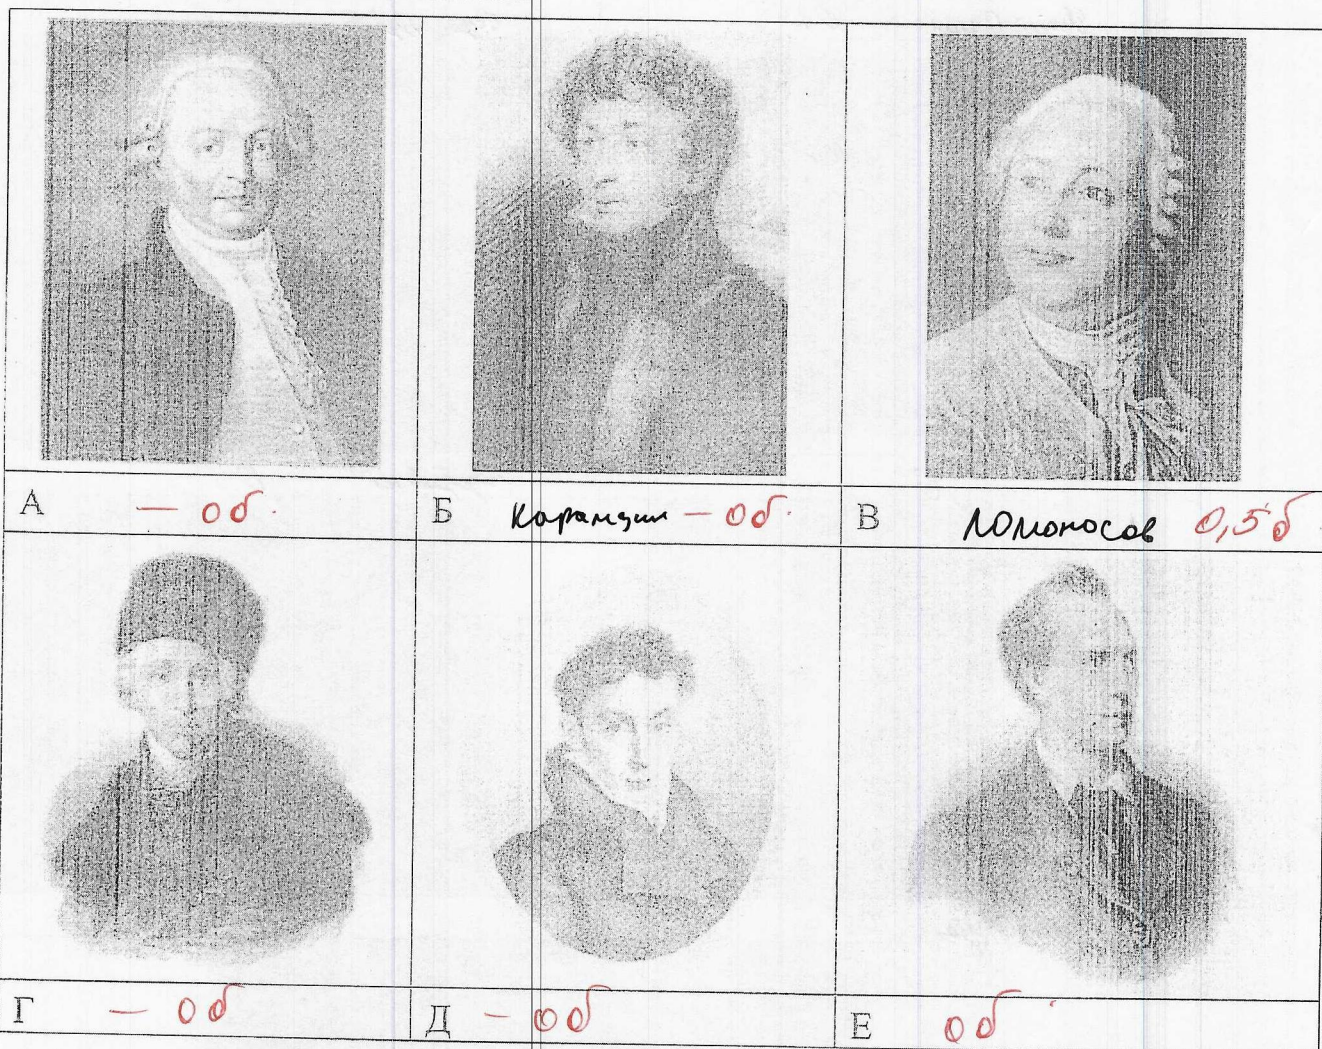 А — 0 б.
Б Карамзин — 0 б.
В Ломоносов 0,5 б.
Г — 0 б
Д — 0 б
Е 0 б